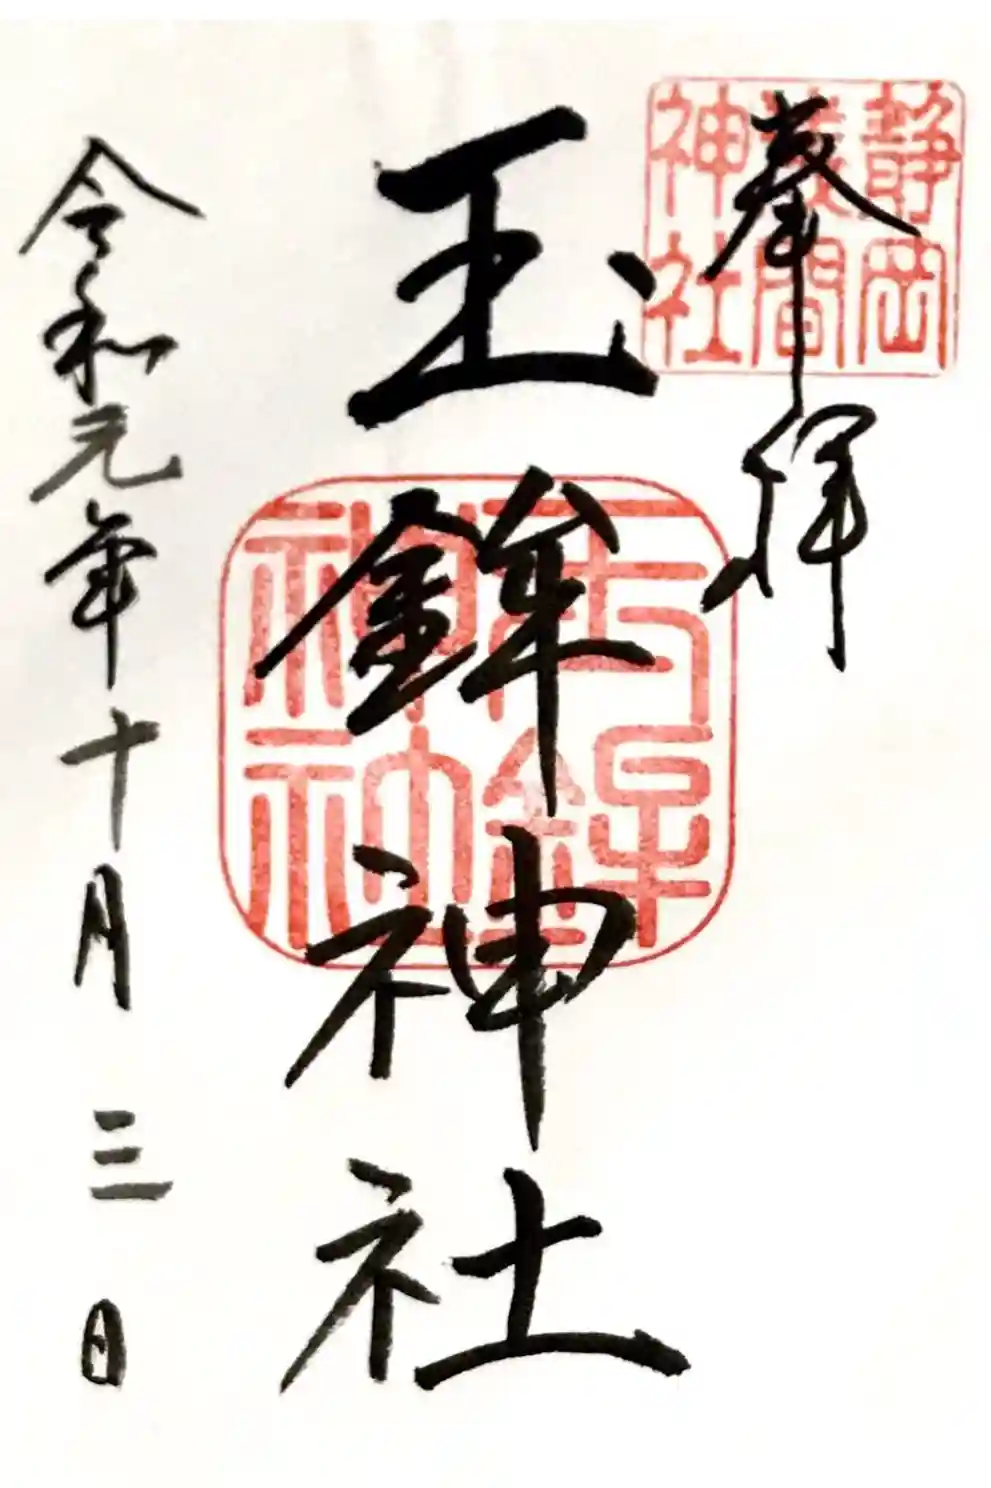 奉拝
静岡
浅間
神社
玉鉾神社
玉鉾
神社
令和元年十月三日